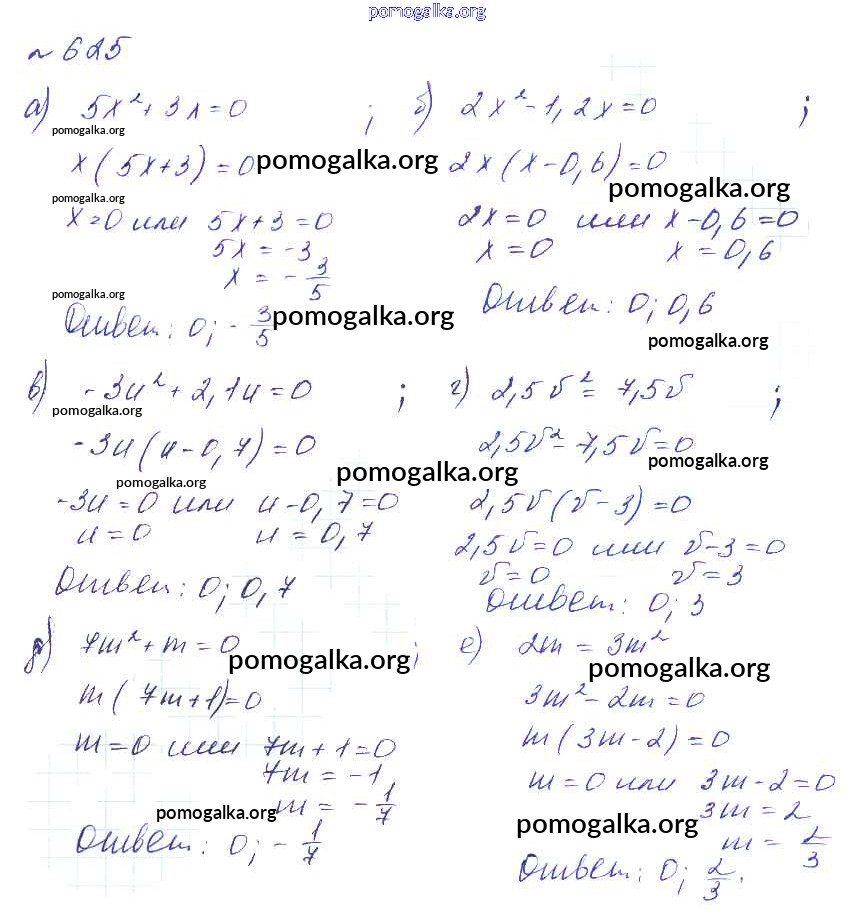 pomogalka.org
№ 625
а) 5x² + 3x = 0 ;
pomogalka.org
x(5x+3) = 0
pomogalka.org
pomogalka.org
x=0 или 5x+3=0
5x = -3
x = -3/5
pomogalka.org
Ответ: 0; -3/5
pomogalka.org
б) 2x² - 1,2x = 0 ;
2x(x-0,6) = 0
pomogalka.org
2x=0 или x-0,6=0
x=0 x=0,6
Ответ: 0; 0,6
pomogalka.org
в) -3u² + 2,1u = 0 ;
pomogalka.org
-3u(u-0,7) = 0
pomogalka.org
pomogalka.org
-3u=0 или u-0,7=0
u=0 u=0,7
Ответ: 0; 0,7
г) 2,5v² = 7,5v ;
2,5v² - 7,5v = 0
pomogalka.org
2,5v(v-3) = 0
2,5v=0 или v-3=0
v=0 v=3
Ответ: 0; 3
д) 7m² + m = 0 ;
pomogalka.org
m(7m+1) = 0
m=0 или 7m+1=0
7m = -1
m = -1/7
pomogalka.org
Ответ: 0; -1/7
е) 2m = 3m²
pomogalka.org
3m² - 2m = 0
m(3m-2) = 0
m=0 или 3m-2=0
3m = 2
pomogalka.org
m = 2/3
Ответ: 0; 2/3.